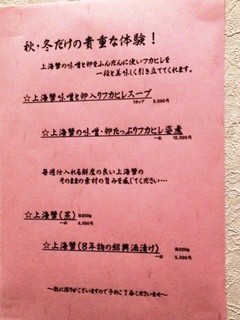 秋・冬だけの貴重な体験！
上海蟹の味噌と卵をふんだんに使いフカヒレを
一段と美味しく引き立ててくれます。
☆上海蟹味噌と卵入りフカヒレスープ
1カップ 3,000円
☆上海蟹の味噌・卵たっぷりフカヒレ姿煮
一枚 12,000円
毎週仕入れる鮮度の良い上海蟹の
そのままの素材の旨みを感じてください…
☆上海蟹(蒸)
一杯 4,500円
☆上海蟹(8年物の紹興酒漬け)
一杯 5,000円
～数に限りがございますので予めご了承くださいませ～